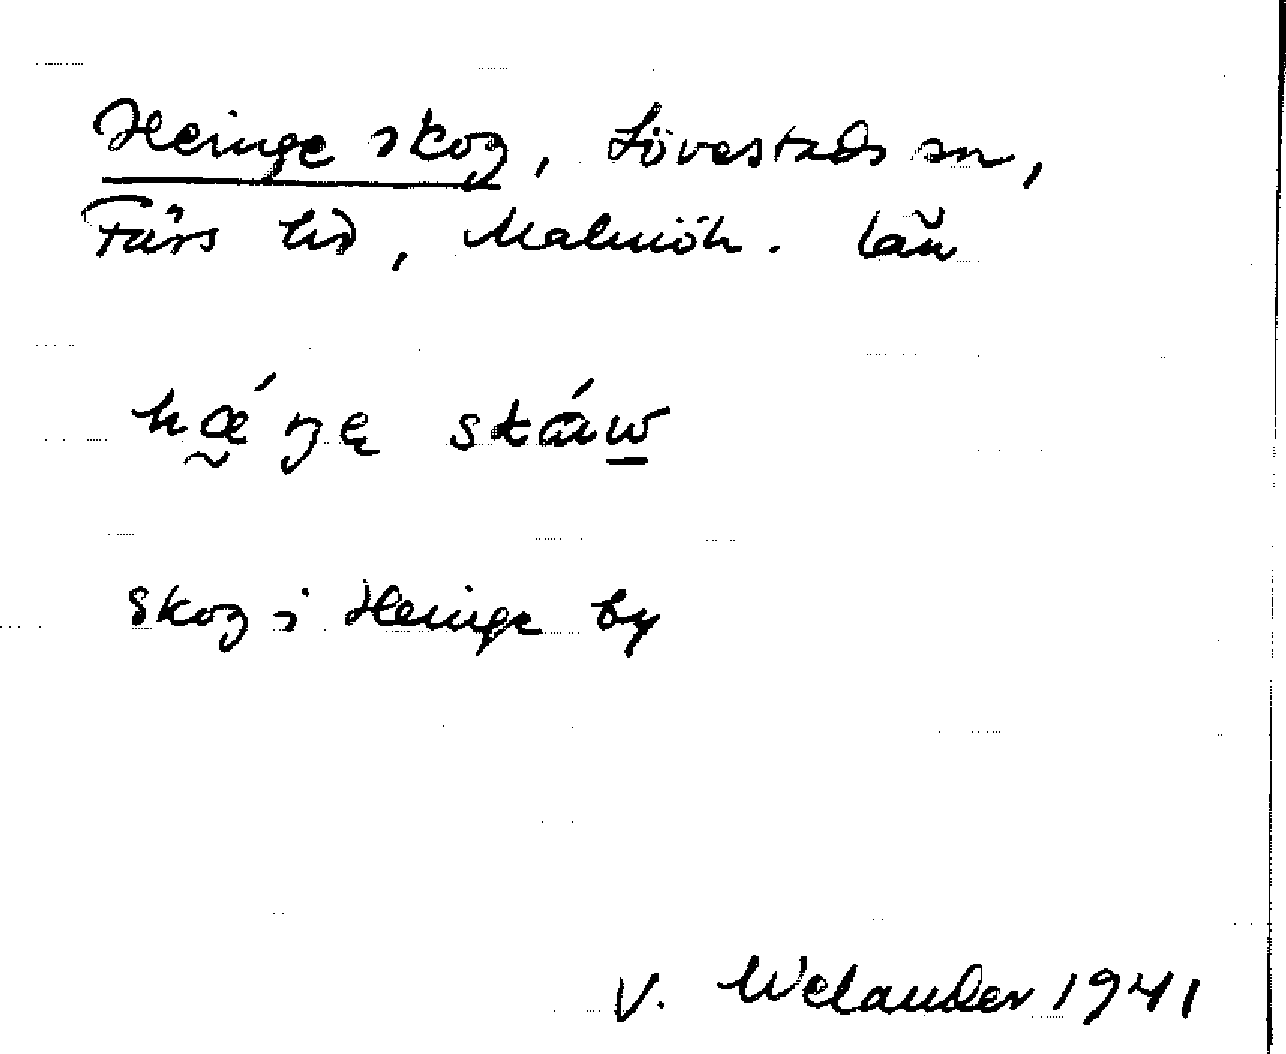 Heinge skog, Lövestads sn,
Färs hd, Malmöh. län
hǽŋę skáw
Skog i Heinge by
V. Welander 1941